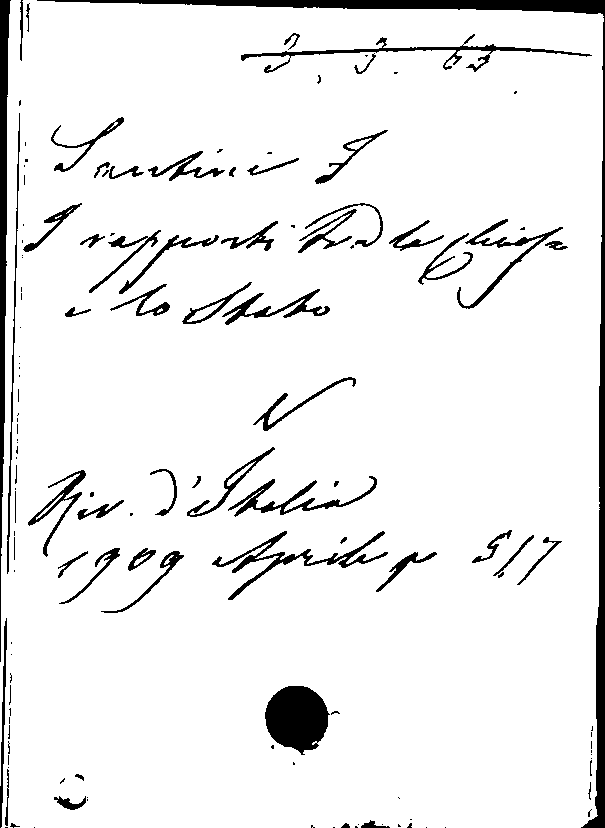 3. 3. 63.
Santini F
I rapporti tra la Chiesa
e lo Stato
V
Riv. d'Italia
1909 Aprile p 517